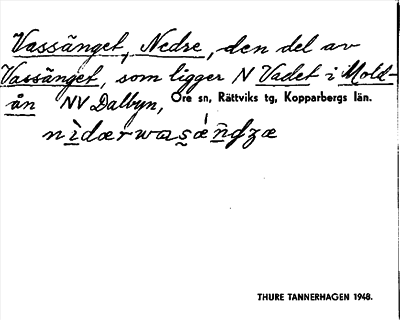 Vassänget, Nedre, den del av
Vassänget, som ligger N Vadet i Mold-
ån NV Dalbyn, Ore sn, Rättviks tg, Kopparbergs län.
nìdærwasǽñdʒæ
THURE TANNERHAGEN 1948.